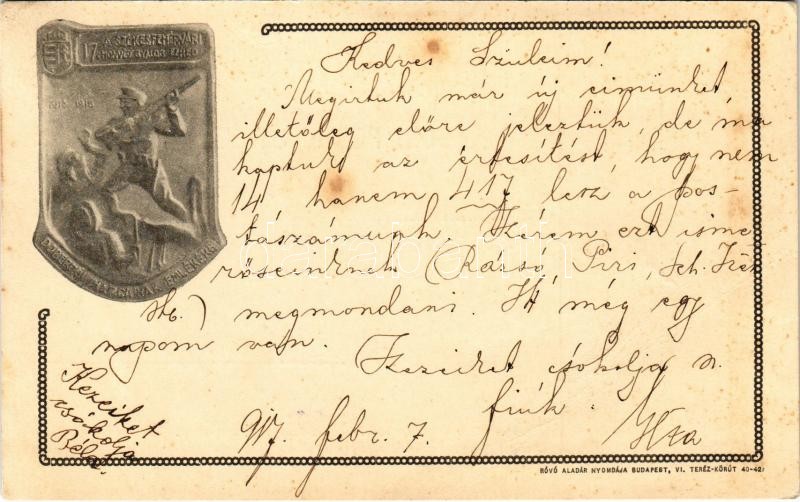 A SZÉKESFEHÉRVÁRI
17 HONVÉD GYALOG EZRED
1915 1916
Kedves Szüleim!
Megirtuk már új cimünket
illetőleg előre jeleztük, de ma
kaptuk az értesítést, hogy nem
14 hanem 417 lesz a pos-
tászámunk. Kérem ezt isme
rőseinknek (Rássó, Piri, Sch.
stb.) megmondani. Itt még egy
napom van.
Kezeiket csókolja
fiúk.
917. febr. 7.
Kezeiket
csókolja
Béla
RÓVÓ ALADÁR NYOMDÁJA BUDAPEST, VI. TERÉZ-KÖRÚT 40-42.
darabanth